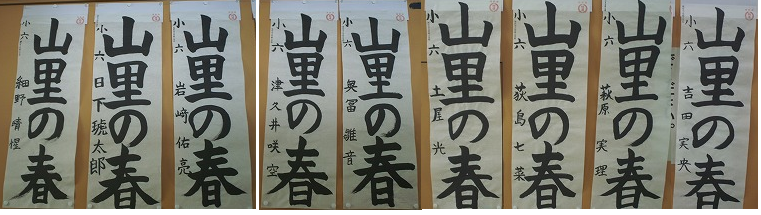 山里の春
小六 細野 晴惺
山里の春
小六 日下琥太郎
山里の春
小六 岩崎 佑亮
山里の春
小六 津久井咲空
山里の春
小六 奥冨 雅音
山里の春
小六 土屋 光
山里の春
小六 荻島七菜
山里の春
小六 萩原 実理
山里の春
小六 吉田実央